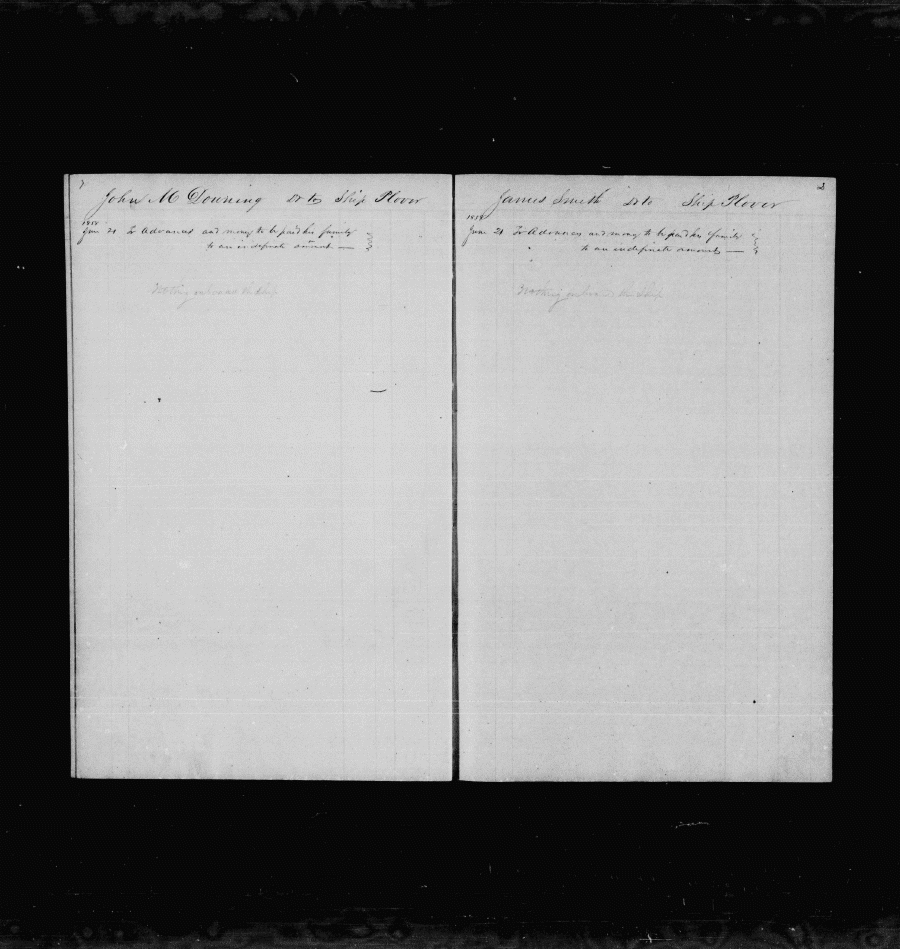 John M Downing Dr to Ship Plover
June 21 To Advances and money to be paid his family
to an indefinite amount —
Nothing on board the ship
2
James Smith Dr to Ship Plover
June 21 To Advances and money to be paid his family
to an indefinite amount —
Nothing on board the ship